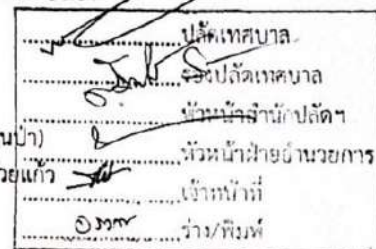 ปลัดเทศบาล
รองปลัดเทศบาล
หัวหน้าสำนักปลัดฯ
นป่า)
หัวหน้าฝ่ายอำนวยการ
วยแก้ว
เจ้าหน้าที่
ร่าง/พิมพ์